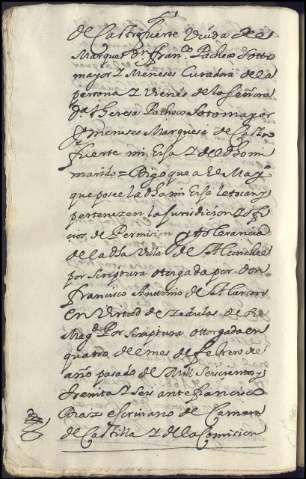 de Castrofuerte Viuda de el
Marques Dn franco Pacheco Soto
mayor Y Meneses Curadora de la
persona Y vienes de la señora
Da theresa Pacheco Sotomayor
Y Meneses Marquesa de Castro
fuerte mi hija Y de el Dho mi
marido = Digo que a el May
que posee la Dha mi hija le tocan y
pertenezen la Jurisdicion
de Permision y tolerancia
de la Dha Villa de
por scriptura otorgada por Don
Francisco Antonio de Alarcon
en Virtud de zedulas de su
Magd Por scriptura otorgada en
quatro de el mes de febrero de
año pasado de Mill seiscientos y
treinta Y seis ante francisco
scrivano de Camara
de Castilla Y de la Comision